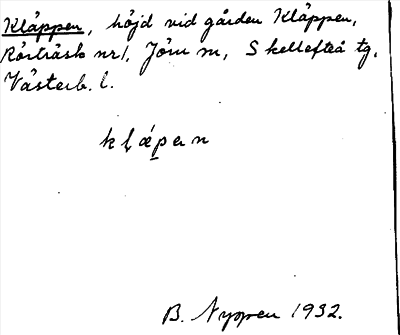 Kläppen, höjd vid gården Kläppen,
Rörträsk nr 1, Jörn sn, Skellefteå tg,
Västerb. l.
kḷæ̣pen
B. Nyppen 1932.